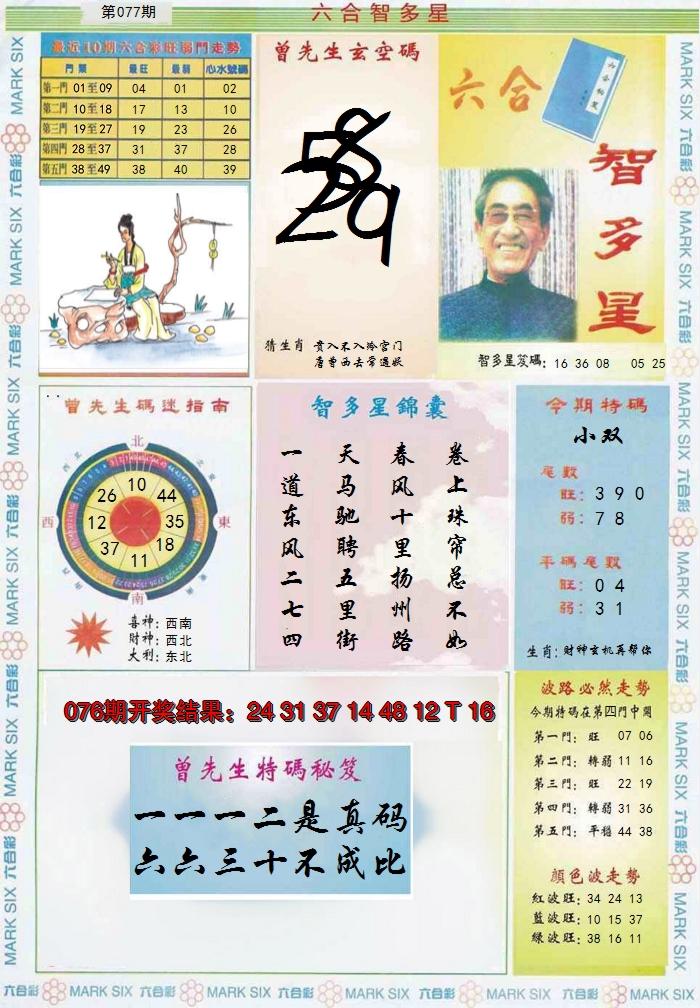 第077期
六合智多星
最近10期六合彩旺弱門走勢
門類 最旺 最弱 心水號碼
第一門 01至09 04 01 02
第二門 10至18 17 13 10
第三門 19至27 19 23 26
第四門 28至37 31 37 28
第五門 38至49 38 40 39
曾先生玄空碼
猜生肖 贵入不入冷宫门
唐曾西去常遇妖
六合
智多星
智多星笈碼: 16 36 08 05 25
曾先生碼迷指南
北
西
東
南
10
44
35
18
11
37
12
26
喜神: 西南
財神: 西北
大利: 东北
智多星錦囊
一道东风二七四
天马驰聘五里街
春风十里扬州路
卷上珠帘总不如
今期特碼
小双
尾數
旺: 3 9 0
弱: 7 8
平碼尾數
旺: 0 4
弱: 3 1
生肖: 财神玄机再帮你
076期开奖结果: 24 31 37 14 48 12 T 16
曾先生特碼秘笈
一一一二是真码
六六三十不成比
波路必然走勢
今期特碼在第四門中開
第一門: 旺 07 06
第二門: 轉弱 11 16
第三門: 旺 22 19
第四門: 轉弱 31 36
第五門: 平穩 44 38
顔色波走勢
紅波旺: 34 24 13
藍波旺: 10 15 37
綠波旺: 38 16 11
六合彩 MARK SIX 六合彩 MARK SIX 六合彩 MARK SIX 六合彩 MARK SIX 六合彩